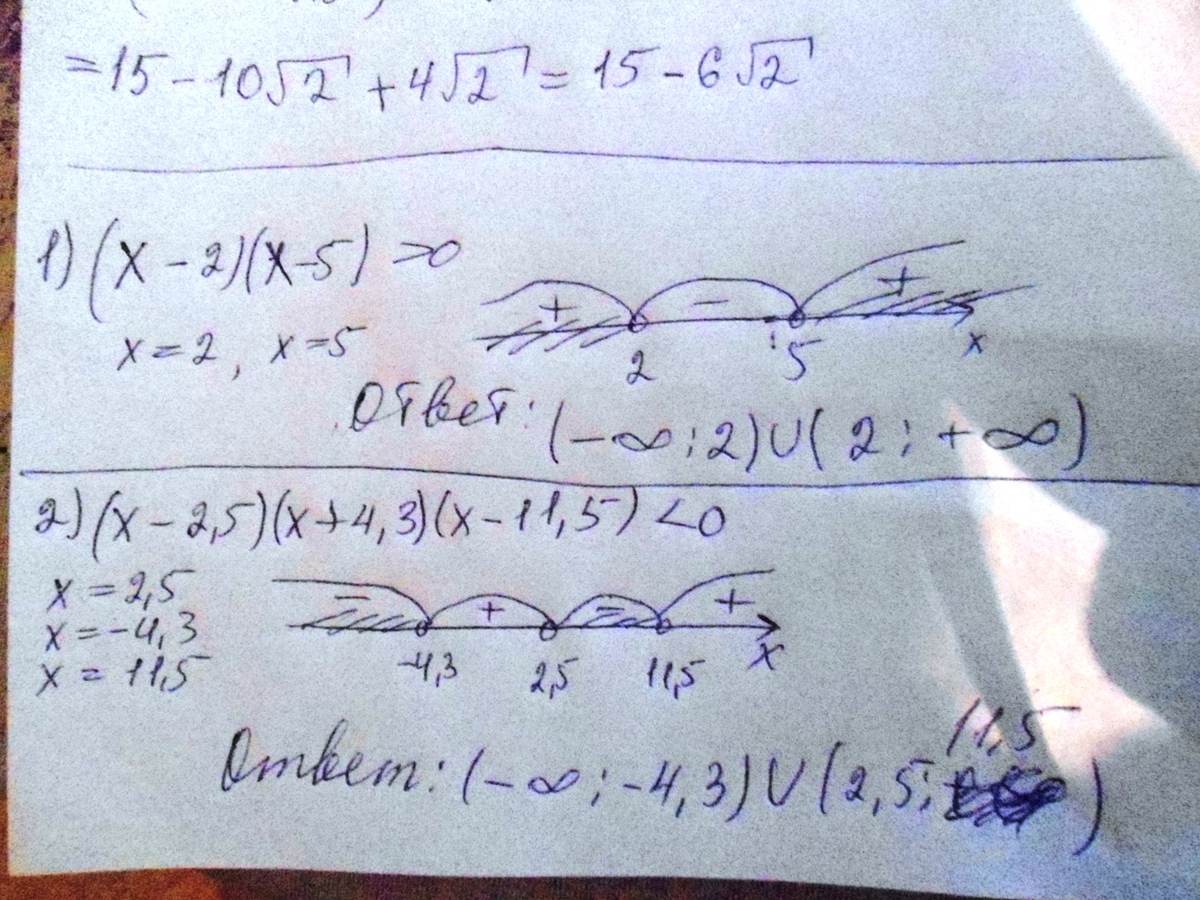 =15-10√2+4√2=15-6√2
1) (x-2)(x-5)>0
+ - +
x=2, x=5
2 5 x
Ответ: (-∞;2)∪(2;+∞)
2) (x-2,5)(x+4,3)(x-11,5)<0
x=2,5
- + - +
x=-4,3
x=11,5
-4,3 2,5 11,5 x
11,5
Ответ: (-∞;-4,3)∪(2,5; )